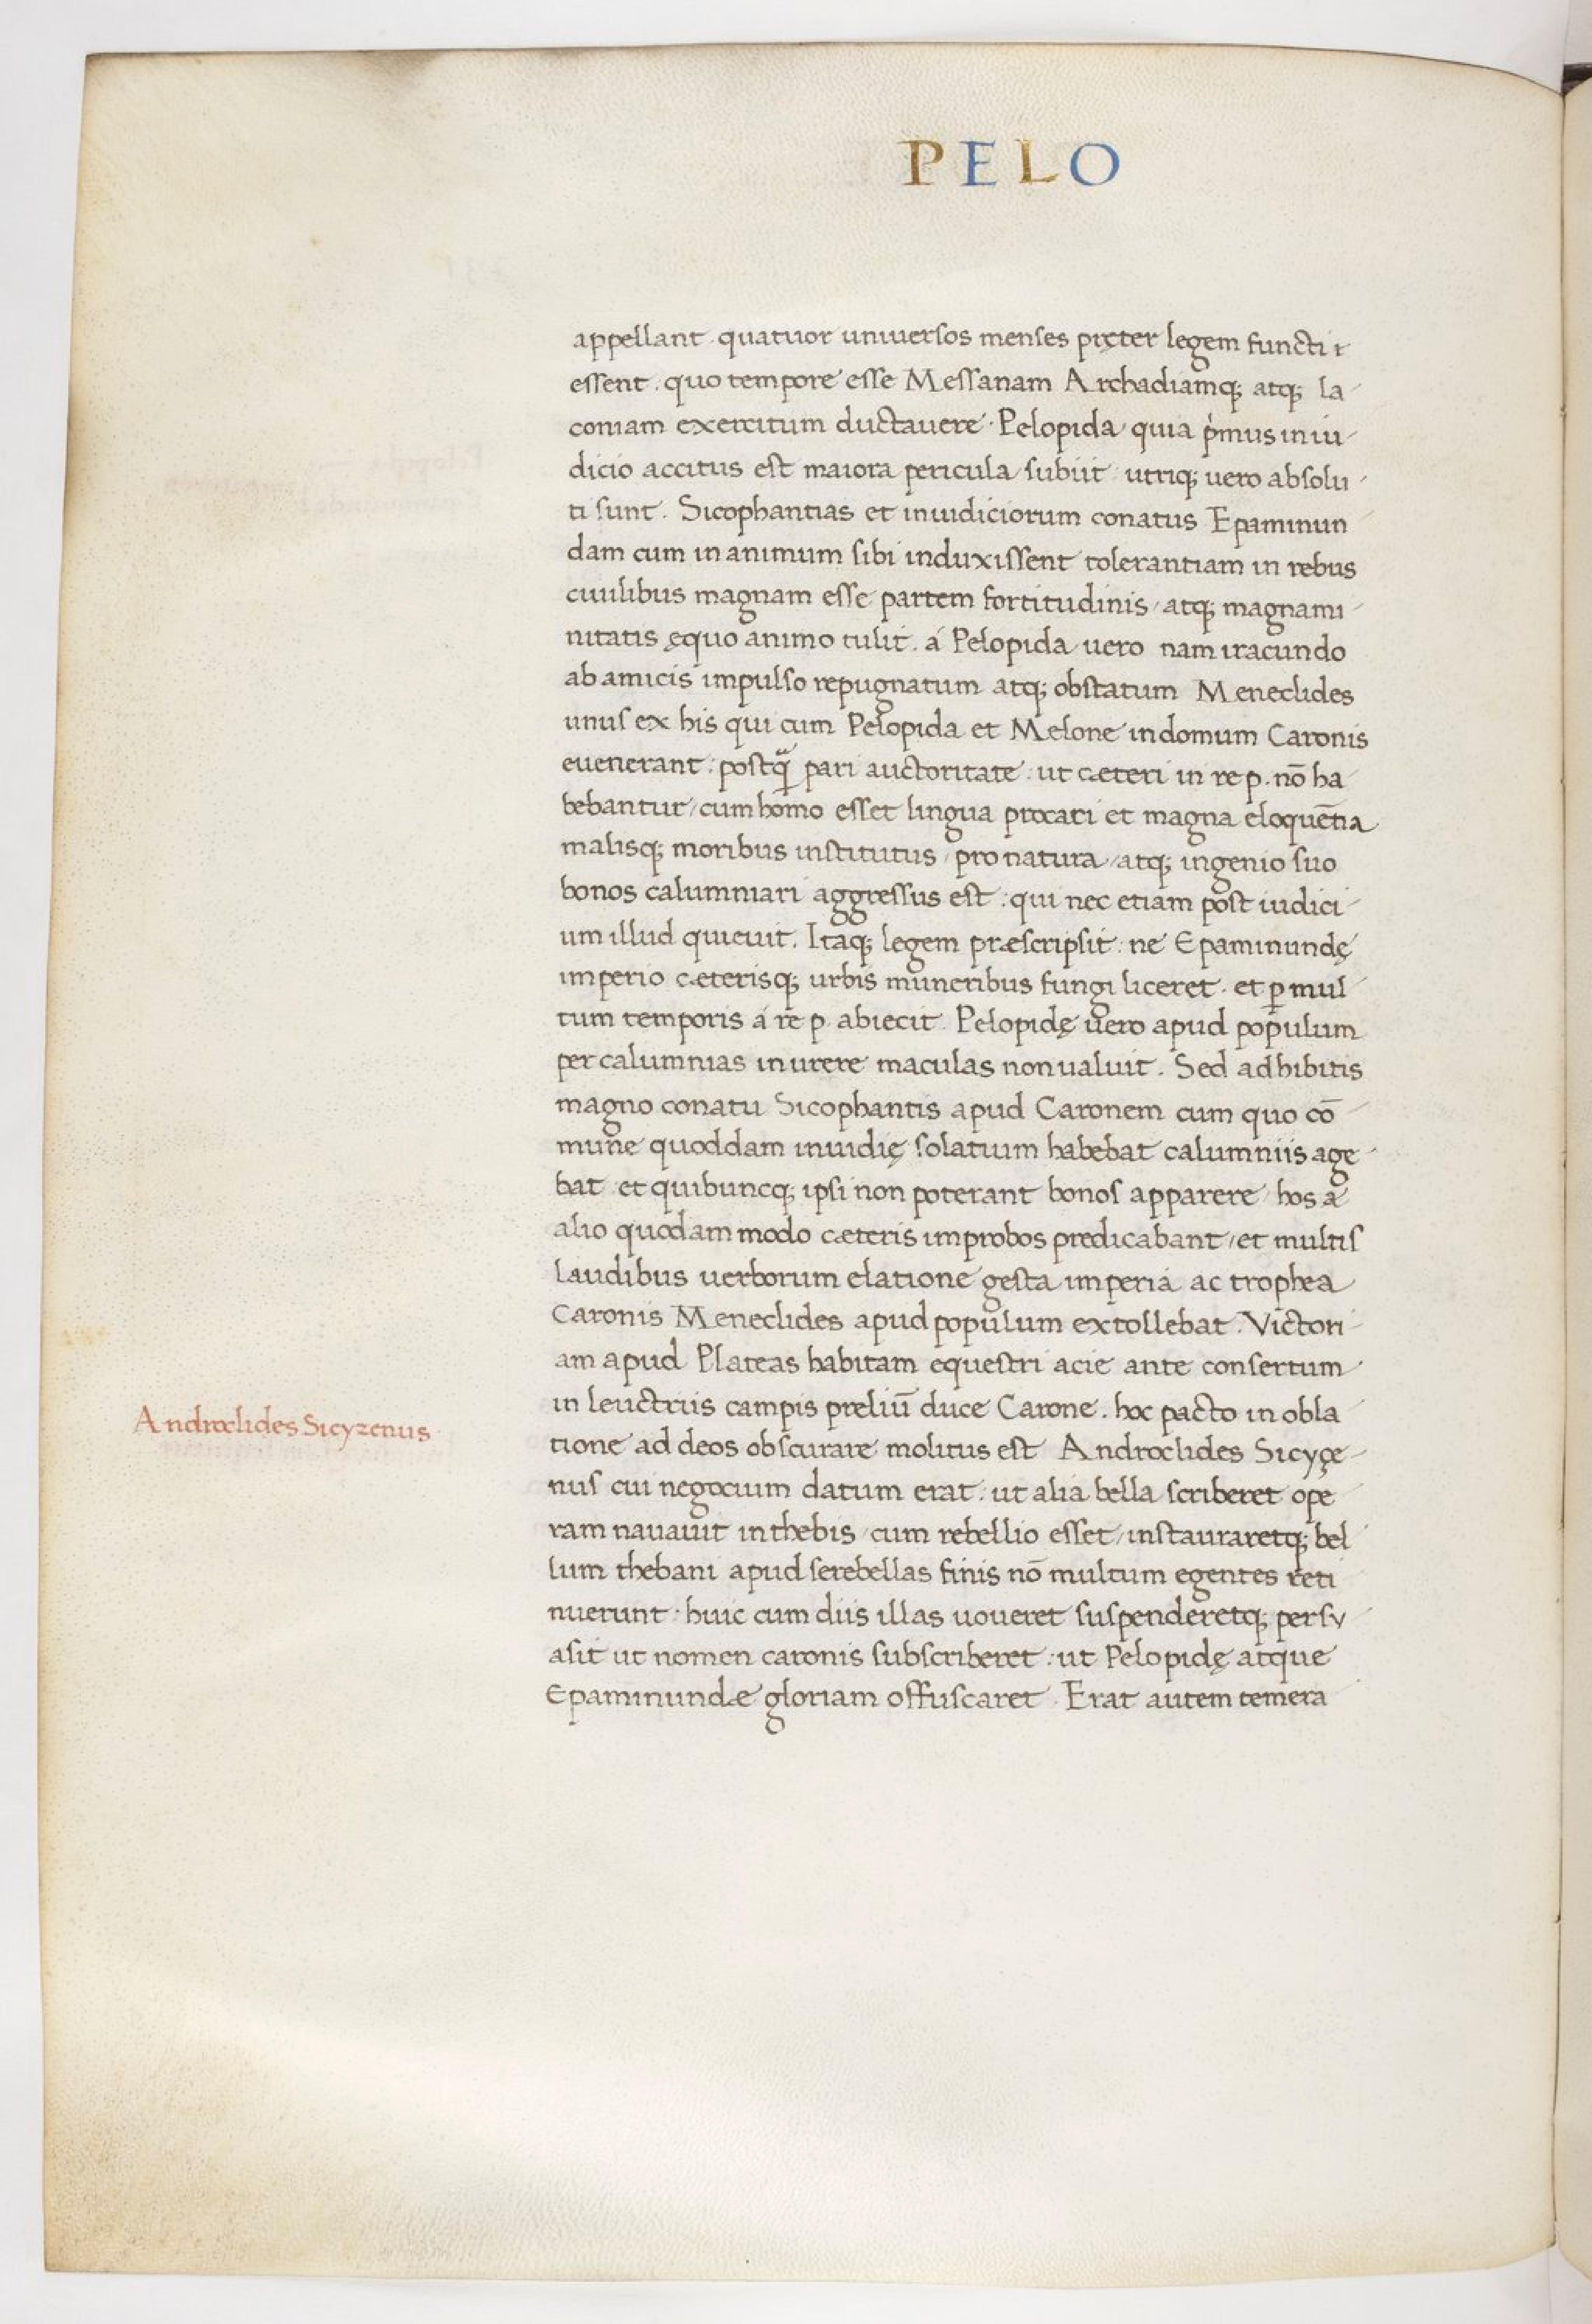 PELO
appellant · quatuor uniuersos menses pręter legem functi
essent . quo tempore esse Messanam Archadiamq; atq; la-
coniam exercitum ductauere · Pelopida quia pi̇mus in iu-
dicio accitus est maiora pericula subiit utriq; uero absolu-
ti sunt . Sicophantias et inuidiciorum conatus Epaminun-
dam cum in animum sibi induxissent tolerantiam in rebus
ciuilibus magnam esse partem fortitudinis / atq; magnami-
nitatis ęquo animo tulit . á Pelopida uero nam iracundo
ab amicis impulso repugnatum atq; obstatum Meneclides
unus ex his qui cum Pelopida et Melone in domum Caronis
euenerant : postq̃ pari auctoritate : ut cæteri in re p. nō ha-
bebantur / cum homo esset lingua procaci et magna eloquētia
malisq; moribus institutus / pro natura / atq; ingenio suo
bonos calumniari aggressus est : qui nec etiam post iudici-
um illud quieuit . Itaq; legem præscripsit : ne Epaminundę
imperio cæterisq; urbis muneribus fungi liceret · et ꝑ mul-
tum temporis á re p. abiecit Pelopidę uero apud populum
per calumnias inurere maculas non ualuit . Sed adhibitis
magno conatu Sicophantis apud Caronem cum quo cō-
mune quoddam inuidię solatium habebat calumniis age-
bat et quibuncq; ipsi non poterant bonos apparere hos a
alio quodam modo cæteris improbos predicabant / et multis
laudibus uerborum elatione gesta imperia ac trophea
Caronis Meneclides apud populum extollebat . Victori-
am apud Plateas habitam equestri acie ante consertum
in leuctriis campis preliū duce Carone . hoc pacto in obla
tione ad deos obscurare molitus est Androclides Sicyçe-
Androclides Sicyzenus
nus cui negocium datum erat : ut alia bella scriberet ope
ram nauauit in thebis / cum rebellio esset / instauraretq; bel-
lum thebani apud serebellas finis nō multum egentes reti
nuerunt : huic cum diis illas uoueret suspenderetq; persv-
asit ut nomen caronis subscriberet : ut Pelopidę atque
Epaminundæ gloriam offuscaret . Erat autem temera